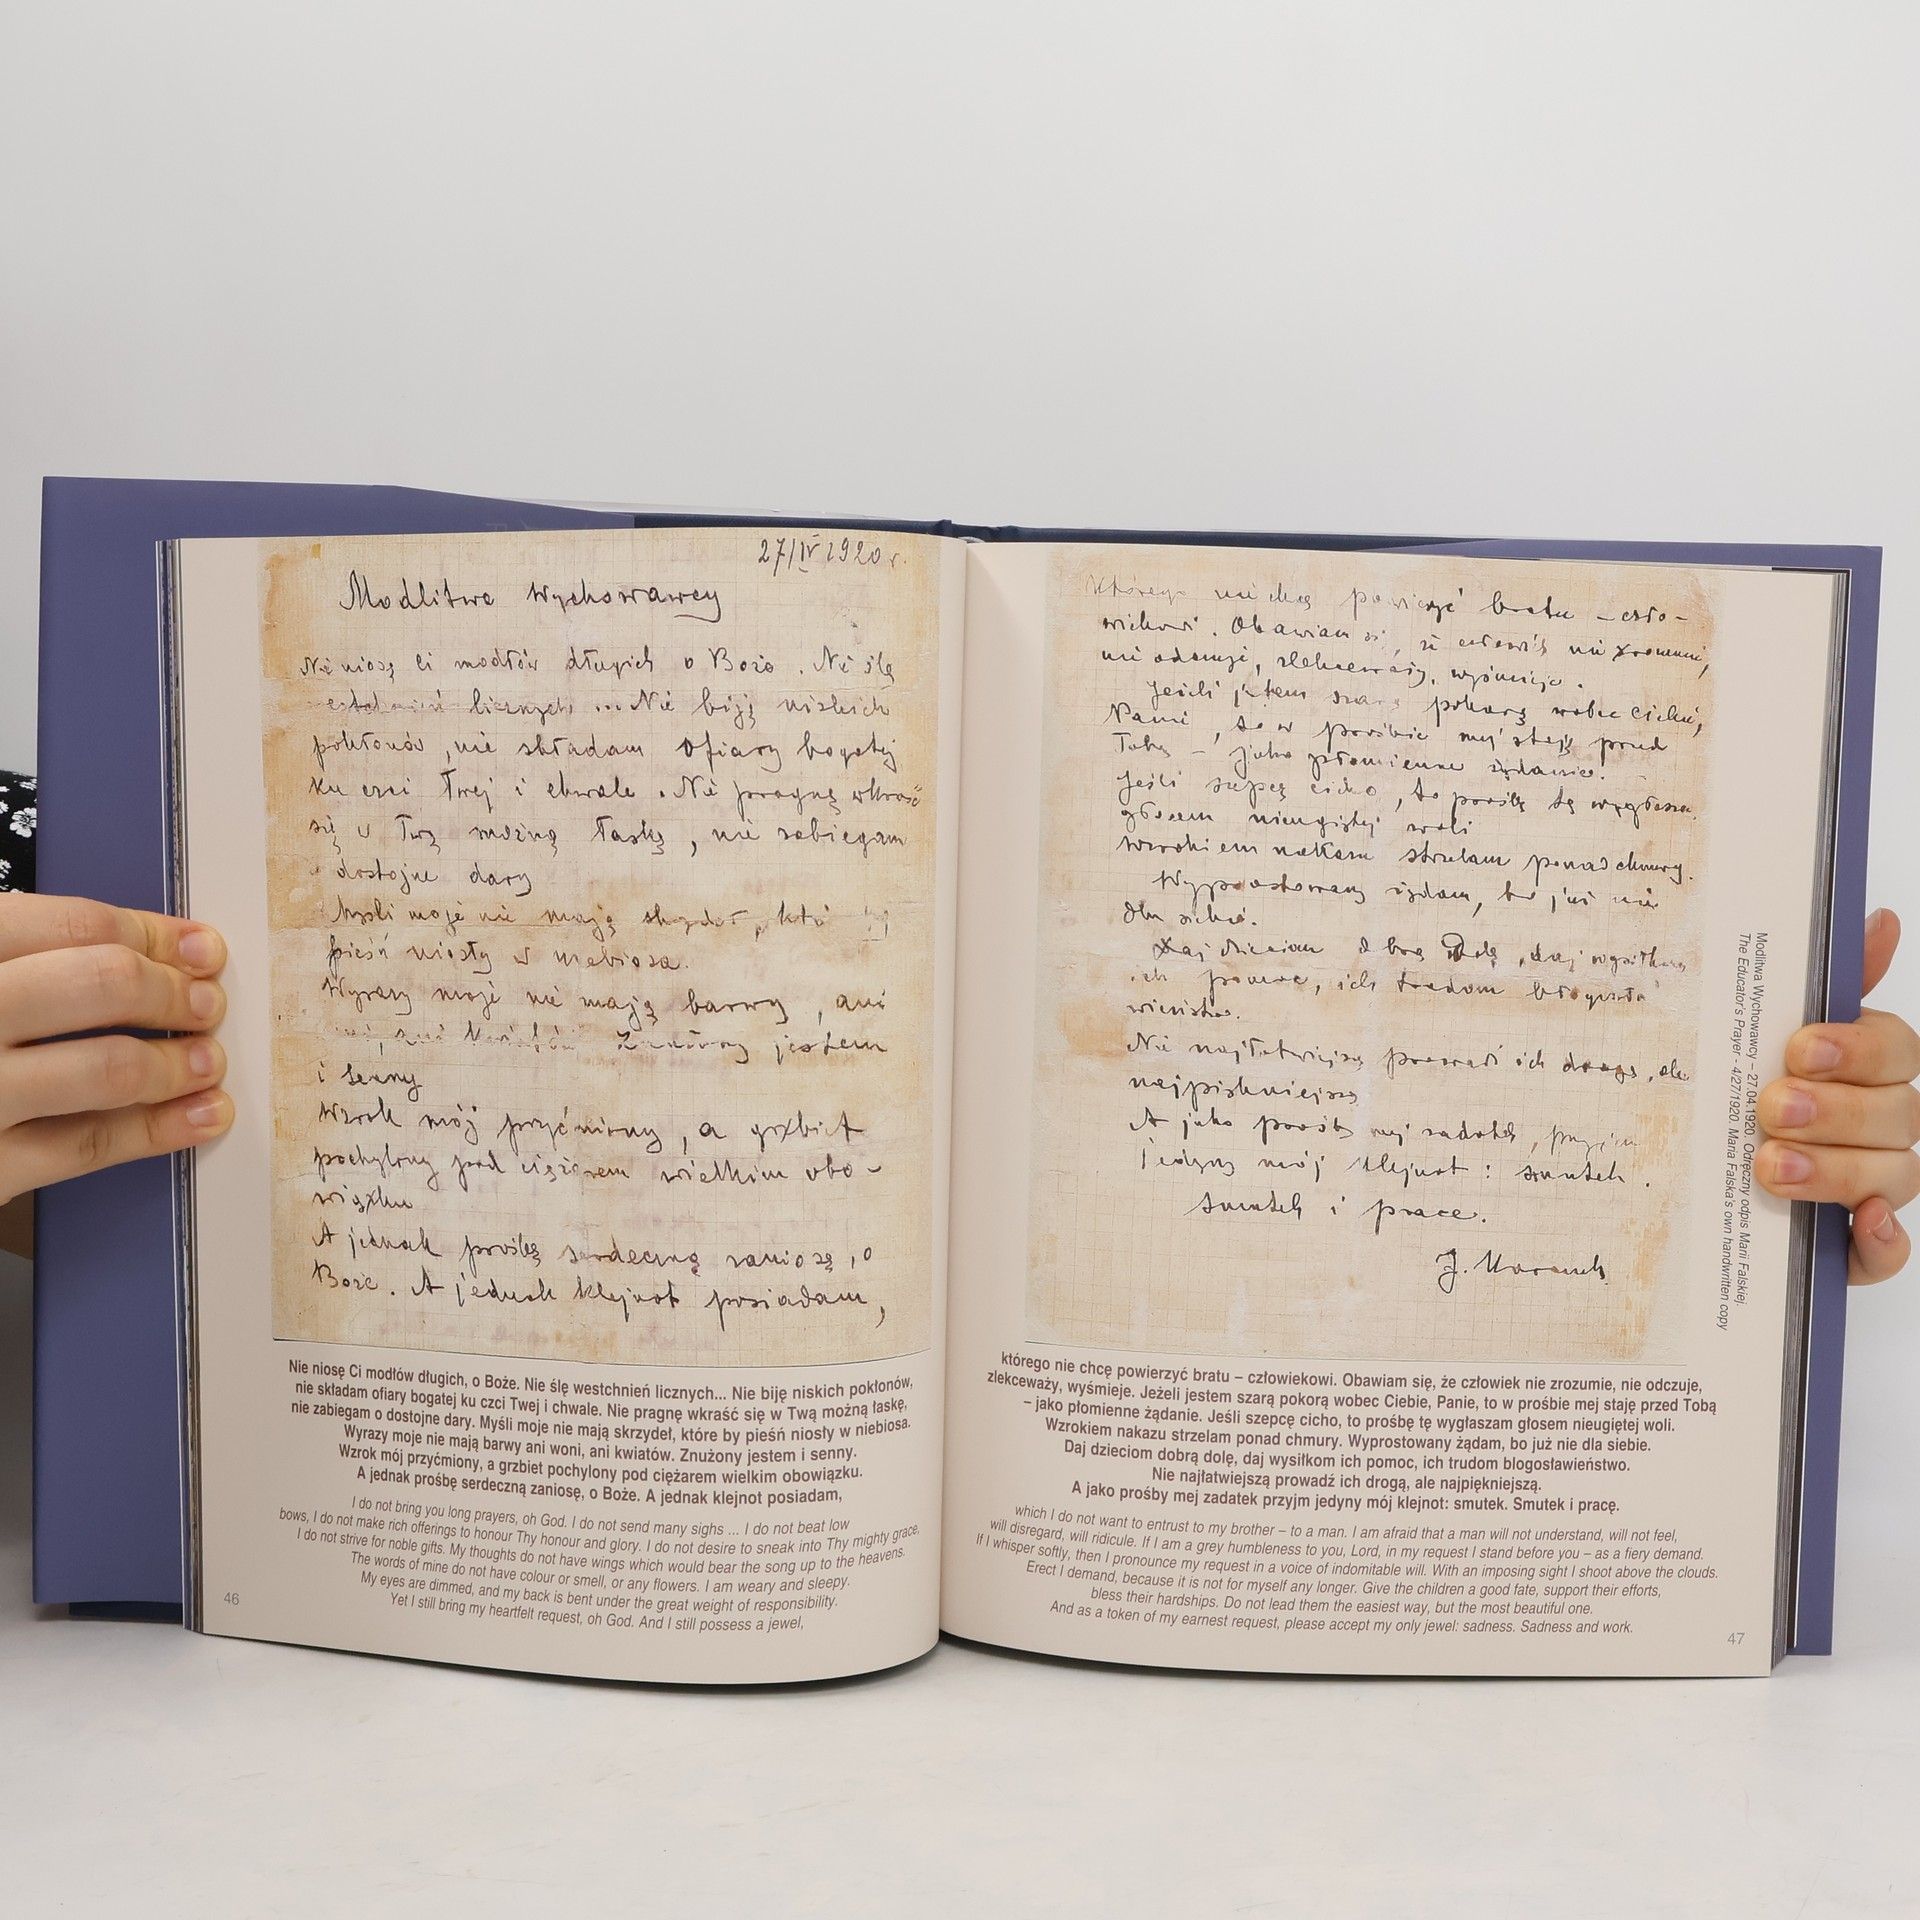 27/IV 1920 r.
Modlitwa Wychowawcy
Nie niosę Ci modłów długich o Boże. Nie ślę
westchnień licznych ... Nie biję niskich
pokłonów, nie składam ofiary bogatej
ku czci Twej i chwale. Nie pragnę wkraść
się w Twą możną łaskę, nie zabiegam
o dostojne dary
Myśli moje nie mają skrzydeł,
pieśń niosły w niebiosa.
Wyrazy moje nie mają barwy, ani
ani kwiatów. Znużony jestem
i senny
Wzrok mój przyćmiony, a grzbiet
pochylony pod ciężarem wielkim obo-
wiązku
A jednak prośbę serdeczną zaniosę, o
Boże. A jednak klejnot posiadam,
Nie niosę Ci modłów długich, o Boże. Nie ślę westchnień licznych... Nie biję niskich pokłonów,
nie składam ofiary bogatej ku czci Twej i chwale. Nie pragnę wkraść się w Twą możną łaskę,
nie zabiegam o dostojne dary. Myśli moje nie mają skrzydeł, które by pieśń niosły w niebiosa.
Wyrazy moje nie mają barwy ani woni, ani kwiatów. Znużony jestem i senny.
Wzrok mój przyćmiony, a grzbiet pochylony pod ciężarem wielkim obowiązku.
A jednak prośbę serdeczną zaniosę, o Boże. A jednak klejnot posiadam,
I do not bring you long prayers, oh God. I do not send many sighs ... I do not beat low
bows, I do not make rich offerings to honour Thy honour and glory. I do not desire to sneak into Thy mighty grace,
I do not strive for noble gifts. My thoughts do not have wings which would bear the song up to the heavens.
The words of mine do not have colour or smell, or any flowers. I am weary and sleepy.
My eyes are dimmed, and my back is bent under the great weight of responsibility.
Yet I still bring my heartfelt request, oh God. And I still possess a jewel,
46
którego nie chcę powierzyć bratu - czło-
wiekowi. Obawiam się, że człowiek nie zrozumie,
nie odczuje, zlekceważy, wyśmieje.
Jeśli jestem szarą pokorą wobec Ciebie,
Panie, to w prośbie mej staję przed
Tobą - jako płomienne żądanie.
Jeśli szepcę cicho, to prośbę tę wygłaszam
głosem nieugiętej woli
Wzrokiem nakazu strzelam ponad chmury.
Wyprostowany żądam, bo już nie
dla siebie.
Daj dzieciom dobrą Dolę, daj wysiłkom
ich pomoc, ich trudom błogosła
wieństwo.
Nie najłatwiejszą prowadź ich drogą, ale
najpiękniejszą
A jako prośby mej zadatek, przyjm
jedyny mój klejnot: smutek.
Smutek i pracę.
J. Korczak
którego nie chcę powierzyć bratu – człowiekowi. Obawiam się, że człowiek nie zrozumie, nie odczuje,
zlekceważy, wyśmieje. Jeżeli jestem szarą pokorą wobec Ciebie, Panie, to w prośbie mej staję przed Tobą
– jako płomienne żądanie. Jeśli szepcę cicho, to prośbę tę wygłaszam głosem nieugiętej woli.
Wzrokiem nakazu strzelam ponad chmury. Wyprostowany żądam, bo już nie dla siebie.
Daj dzieciom dobrą dolę, daj wysiłkom ich pomoc, ich trudom błogosławieństwo.
Nie najłatwiejszą prowadź ich drogą, ale najpiękniejszą.
A jako prośby mej zadatek przyjm jedyny mój klejnot: smutek. Smutek i pracę.
which I do not want to entrust to my brother – to a man. I am afraid that a man will not understand, will not feel,
will disregard, will ridicule. If I am a grey humbleness to you, Lord, in my request I stand before you – as a fiery demand.
If I whisper softly, then I pronounce my request in a voice of indomitable will. With an imposing sight I shoot above the clouds.
Erect I demand, because it is not for myself any longer. Give the children a good fate, support their efforts,
bless their hardships. Do not lead them the easiest way, but the most beautiful one.
And as a token of my earnest request, please accept my only jewel: sadness. Sadness and work.
47
Modlitwa Wychowawcy – 27.04.1920. Odręczny odpis Marii Falskiej.
The Educator's Prayer - 4/27/1920. Maria Falska's own handwritten copy